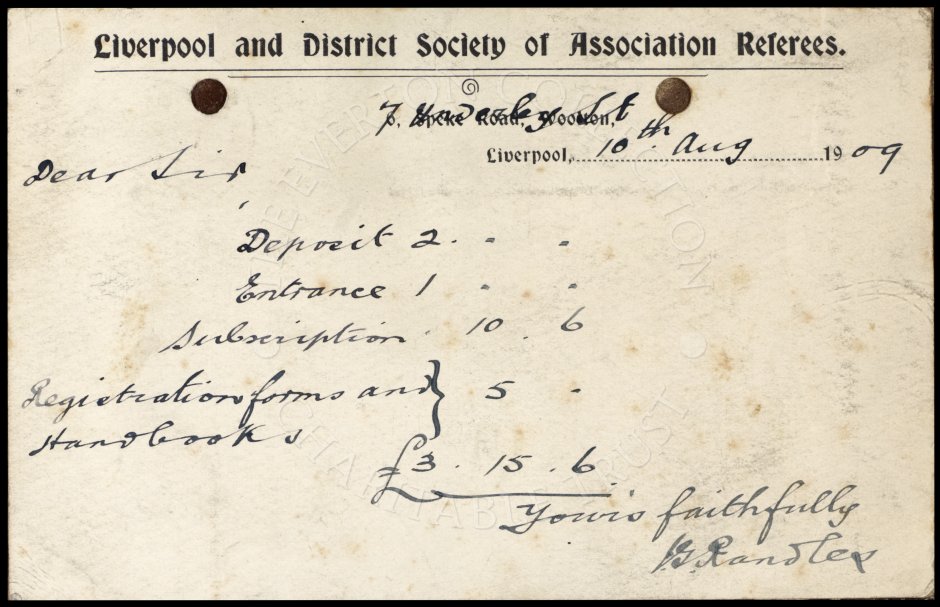 Liverpool and District Society of Association Referees.
7 St
6, Speke Road, Woolton,
Liverpool, 10th Aug 1909
Dear Sir
Deposit 2 . " "
Entrance 1 " "
Subscription . 10 . 6
Registration forms and } 5 -
Handbooks
£3 . 15 . 6
Yours faithfully
J G Randles
EVERTON COLLECTION CHARITABLE TRUST